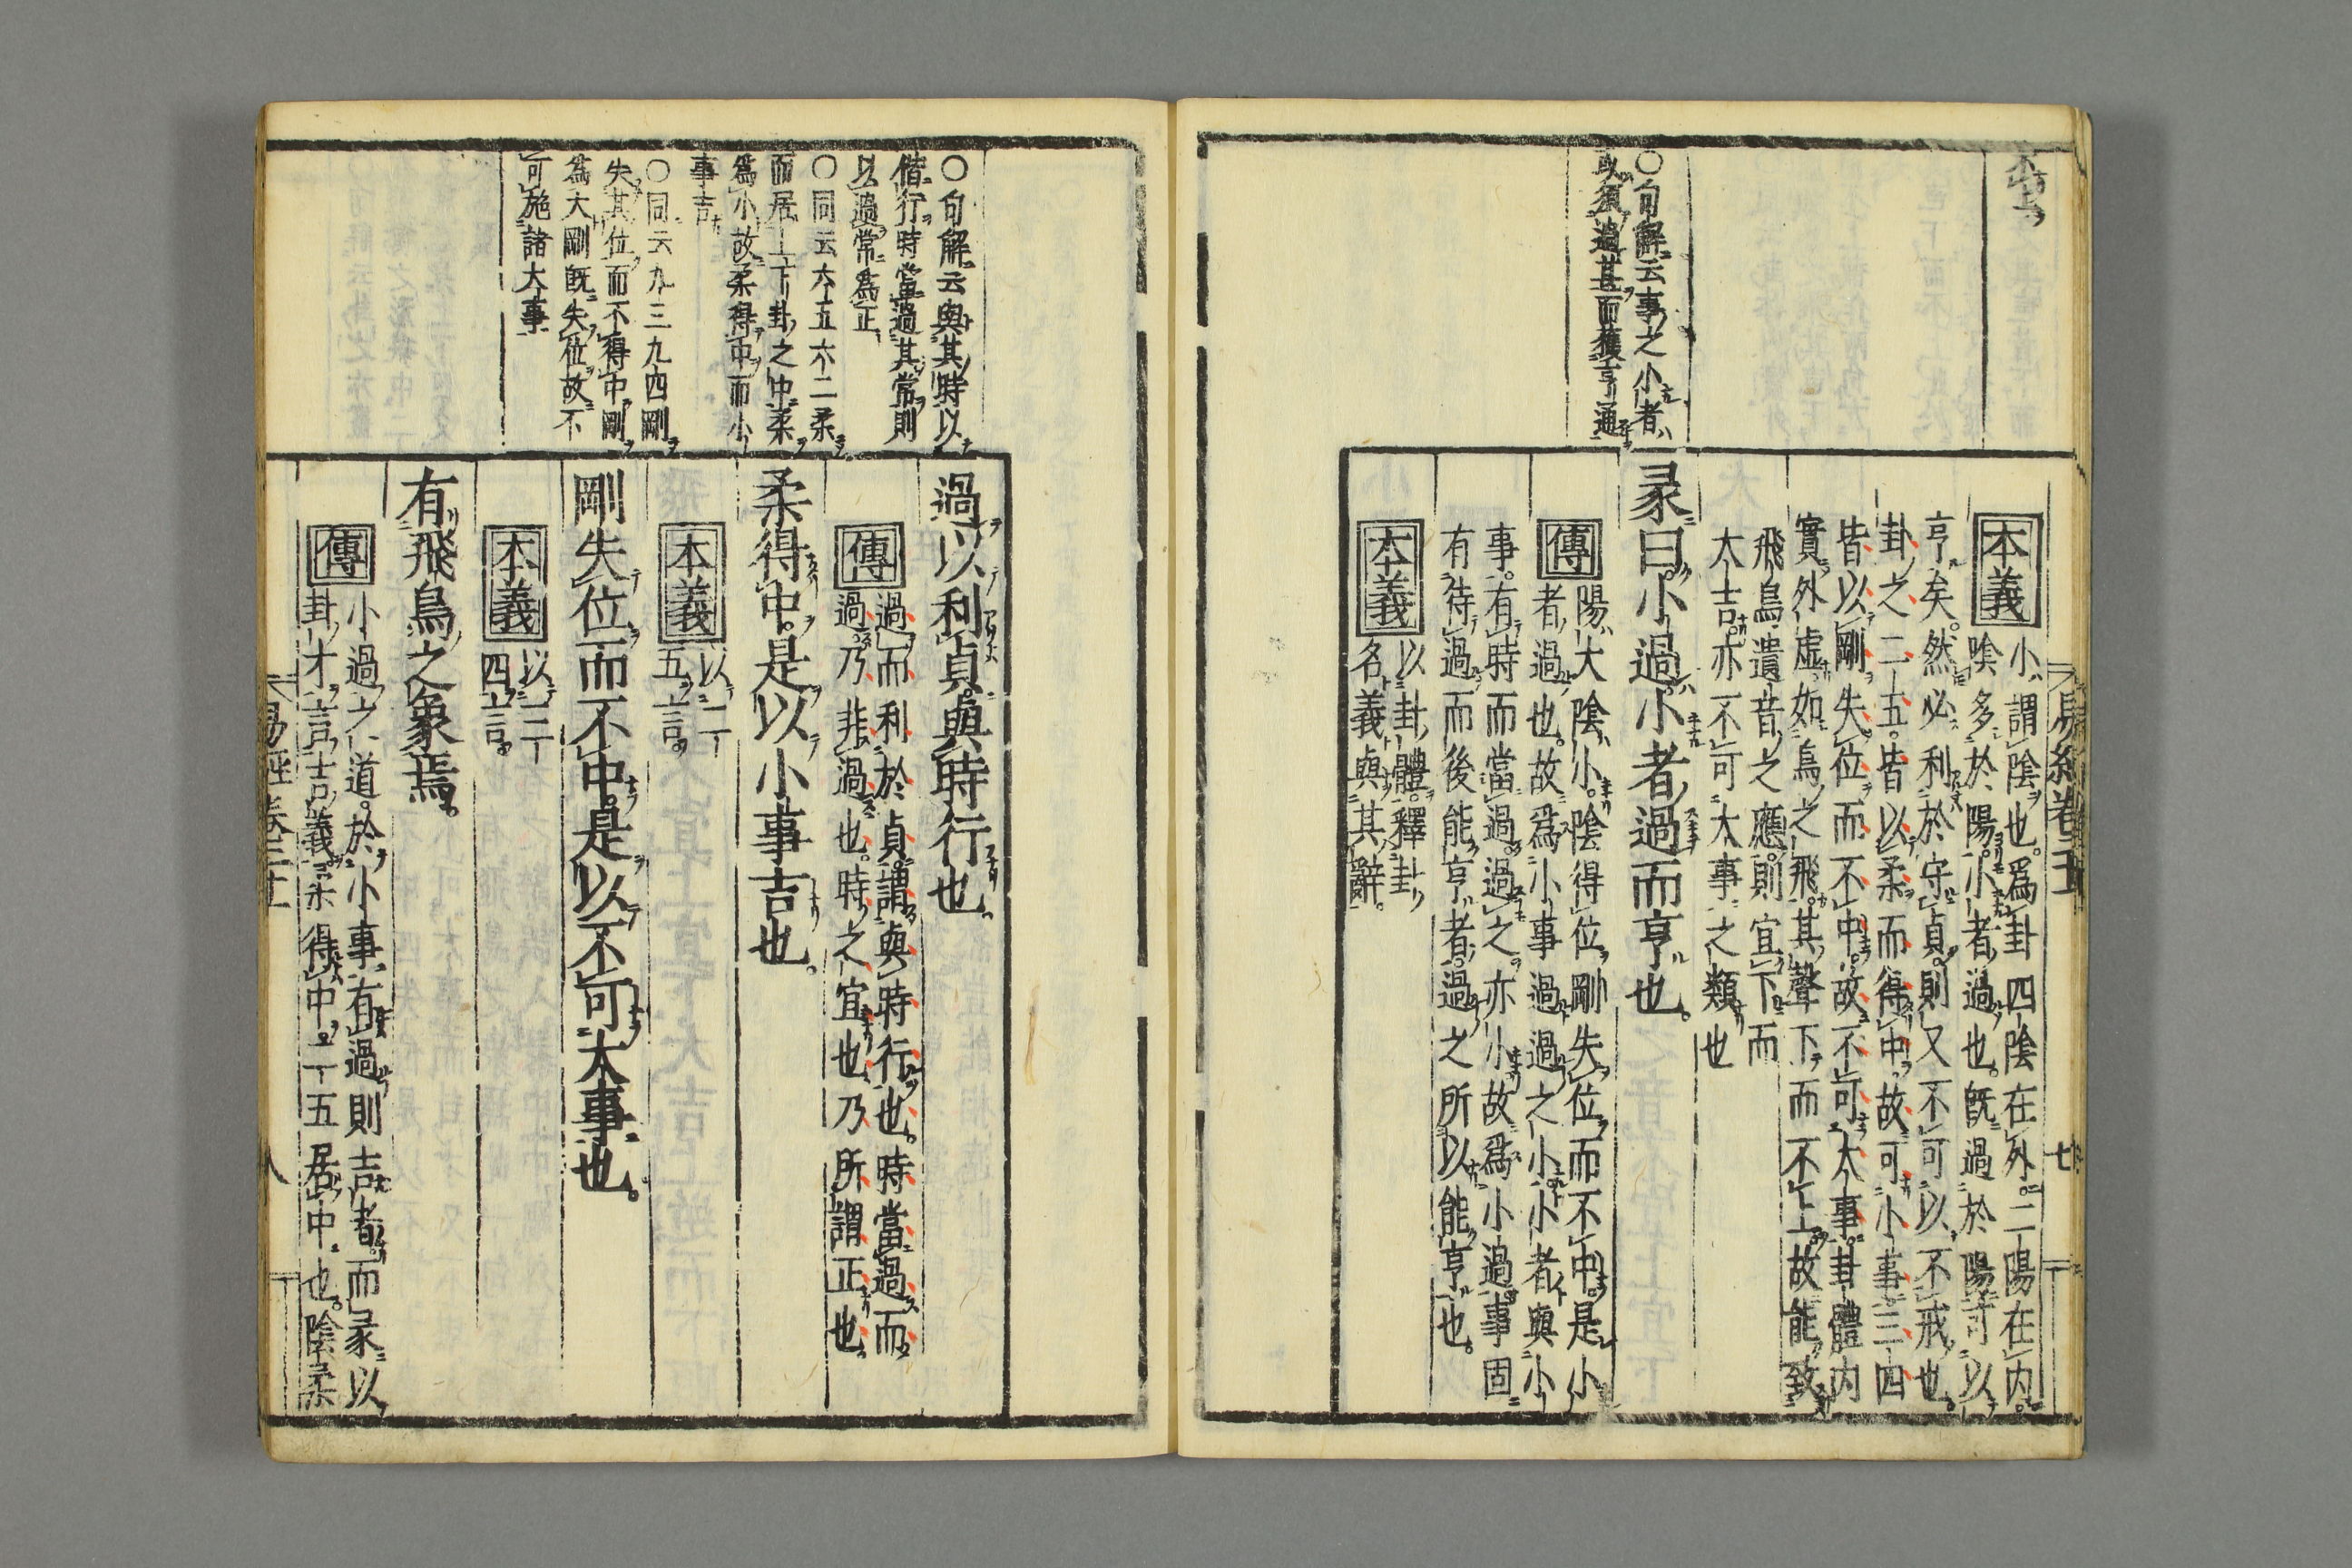 ○句解云事之小者
或須過甚而獲亨通
本義
小謂陰也。爲卦四陰在外。二陽在内。
陰多於陽。小者過也。既過於陽。可以
亨矣。然必利於守貞。則又不可以不戒也。
卦之二五。皆以柔而得中。故可小事。三四
皆以剛失位而不中。故不可大事。卦體内
實外虛。如鳥之飛。其聲下而不上。故能致
飛鳥遺音之應。則宜下而
大吉。亦不可大事之類也
彖曰。小過。小者過而亨也。
傳
陽大陰小。陰得位。剛失位而不中。是小
者過也。故爲小事過。過之小。小者與小
事。有時而當過。過之亦小。故爲小過。事固
有待過而後能亨者。過之所以能亨也。
本義
以卦體。釋卦
名義與其辭。
易經卷二十
七
○句解云與其時以
偕行時當過其常則
以過常爲正
○同云六五六二柔
而居上下卦之中柔
爲小故柔得中而小
事吉
○同云九三九四剛
失其位而不得中剛
爲大剛既失位故不
可施諸大事
過以利貞。與時行也。
傳
過而利於貞。謂與時行也。時當過而
過。乃非過也。時之宜也。乃所謂正也。
柔得中。是以小事吉也。
本義
以二
五言。
剛失位而不中。是以不可大事也。
本義
以三
四言。
有飛鳥之象焉。
傳
小過之道。於小事有過則吉者。而彖以
卦才言吉義。柔得中。二五居中也。陰柔
易經卷二十
八